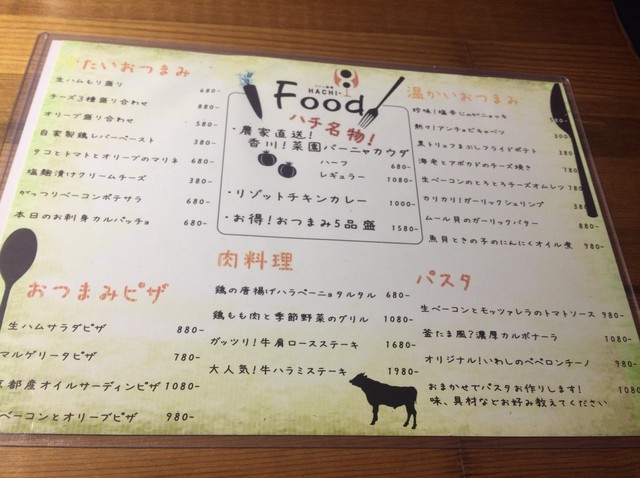 たいおつまみ
生ハムもり盛り 680-
チーズ3種盛り合わせ 880-
オリーブ盛り合わせ 580-
自家製鶏レバーペースト 380-
タコとトマトとオリーブのマリネ 680-
塩麹漬けクリームチーズ 380-
がっつりベーコンポテサラ 680-
本日のお刺身カルパッチョ 680-
HACHI
Food
ハチ名物!
・農家直送!
香川!菜園バーニャカウダ
ハーフ 680-
レギュラー 1080-
・リゾットチキンカレー 1000-
・お得!おつまみ5品盛 1580-
温かいおつまみ
珍味!塩辛じゃがニョッキ
熱々!アンチョビキャベツ
黒トリュフまぶしフライドポテト
海老とアボカドのチーズ焼き 780-
生ベーコンのとろとろチーズオムレツ
カリカリ!ガーリックシュリンプ
ムール貝のガーリックバター 880-
魚貝ときの子のにんにくオイル煮 980-
おつまみピザ
生ハムサラダピザ 880-
マルゲリータピザ 780-
京都産オイルサーディンピザ 1080-
ベーコンとオリーブピザ 980-
肉料理
鶏の唐揚げハラペーニョタルタル 680-
鶏もも肉と季節野菜のグリル 1080-
ガッツリ!牛肩ロースステーキ 1680-
大人気!牛ハラミステーキ 1980-
パスタ
生ベーコンとモッツァレラのトマトソース 980-
釜たま風?濃厚カルボナーラ 1080-
オリジナル!いわしのペペロンチーノ 980-
おまかせでパスタお作りします!
味、具材などお好み教えてください